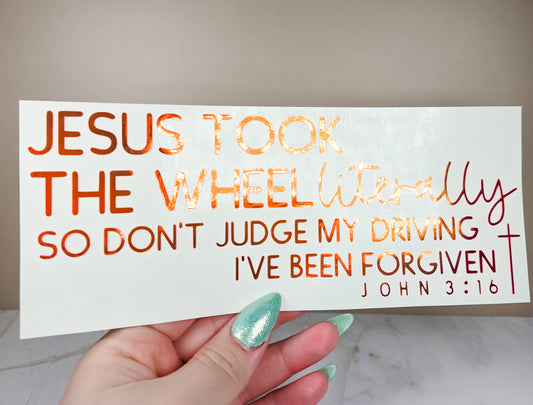 JESUS TOOK
THE WHEEL literally
SO DON'T JUDGE MY DRIVING
I'VE BEEN FORGIVEN
JOHN 3:16